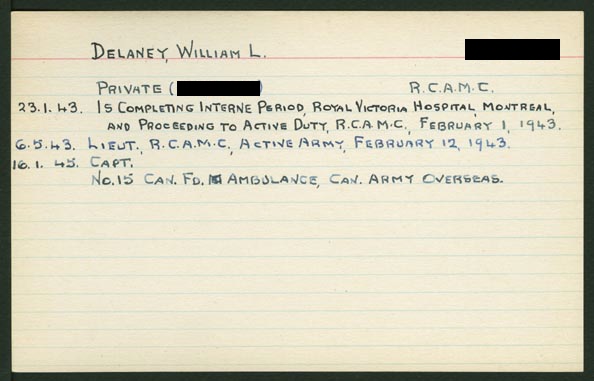 DELANEY, WILLIAM L.
PRIVATE ( ) R.C.A.M.C.
23.1.43. IS COMPLETING INTERNE PERIOD, ROYAL VICTORIA HOSPITAL, MONTREAL,
AND PROCEEDING TO ACTIVE DUTY, R.C.A.M.C., FEBRUARY 1, 1943.
6.5.43. LIEUT., R.C.A.M.C., ACTIVE ARMY, FEBRUARY 12, 1943.
16.1.45. CAPT.
NO.15 CAN. FD. AMBULANCE, CAN. ARMY OVERSEAS.